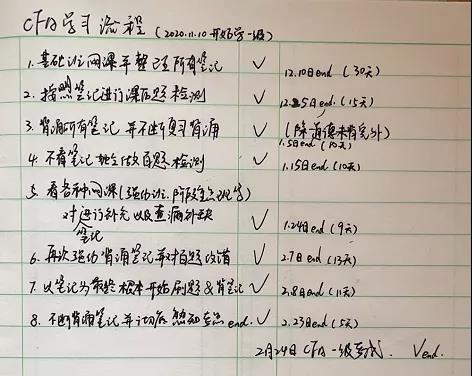 CFA学习流程 (2020.11.10开始学一级)
1. 基础班网课并整理所有笔记 ✓ 12.10日end (30天)
2. 按照笔记进行课后题检测 ✓ 12.25日end (15天)
3. 背诵所有笔记并不断复习背诵 ✓ (除道德未背完外)
1.5日end (10天)
4. 不看笔记独立做百题检测 ✓ 1.15日end (10天)
5. 看各种网课(强化班、阶段重点班等)
对笔记进行补充以及查漏补缺 ✓ 1.24日end (9天)
6. 再次强化背诵笔记并对百题改错 ✓ 2.7日end (13天)
7. 以笔记为最终根本开始刷题&背笔记 ✓ 2.8日end (11天)
8. 不断背诵笔记并 end. ✓ 2.23日end (5天)
2月24日 CFA一级考试. ✓end.